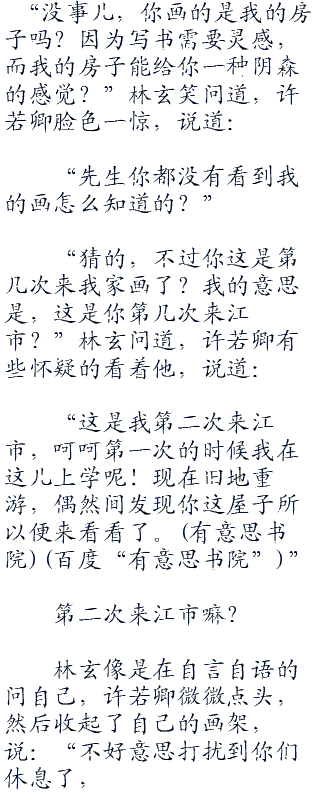 “没事儿，你画的是我的房
子吗？因为写书需要灵感，
而我的房子能给你一种阴森
的感觉？”林玄笑问道，许
若卿脸色一惊，说道：
“先生你都没有看到我
的画怎么知道的？”
“猜的，不过你这是第
几次来我家画了？我的意思
是，这是你第几次来江
市？”林玄问道，许若卿有
些怀疑的看着他，说道：
“这是我第二次来江
市，呵呵第一次的时候我在
这儿上学呢！现在旧地重
游，偶然间发现你这屋子所
以便来看看了。(有意思书
院)(百度“有意思书院”)”
第二次来江市嘛？
林玄像是在自言自语的
问自己，许若卿微微点头，
然后收起了自己的画架，
说：“不好意思打扰到你们
休息了，